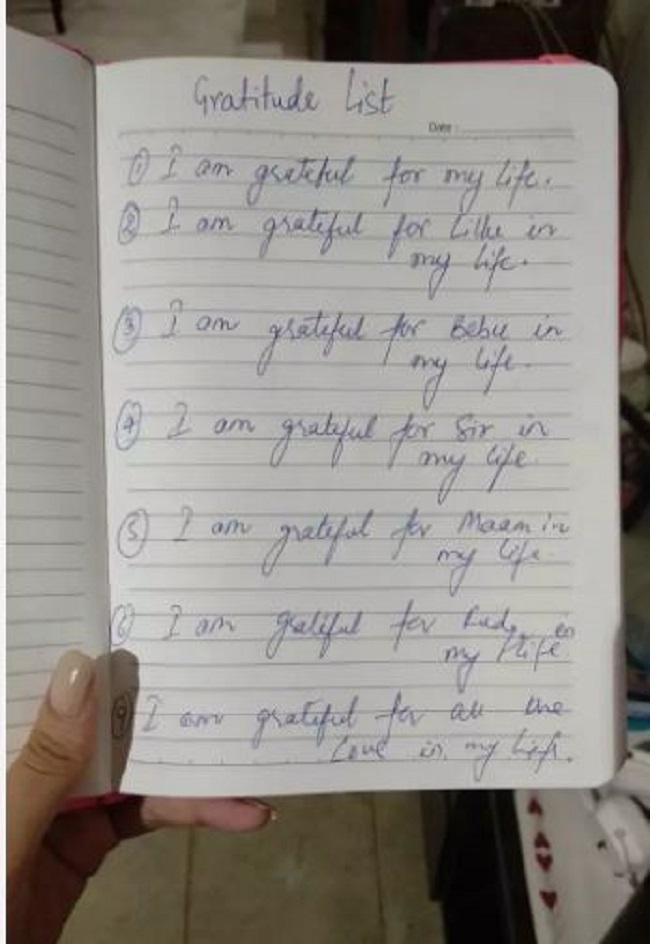 Gratitude List
Date :
① I am grateful for my life.
② I am grateful for Lillu in
my life.
③ I am grateful for Bebu in
my life.
④ I am grateful for Sir in
my life.
⑤ I am grateful for Maam in
my life.
⑥ I am grateful for in
my life
I am grateful for all the
Love in my life.